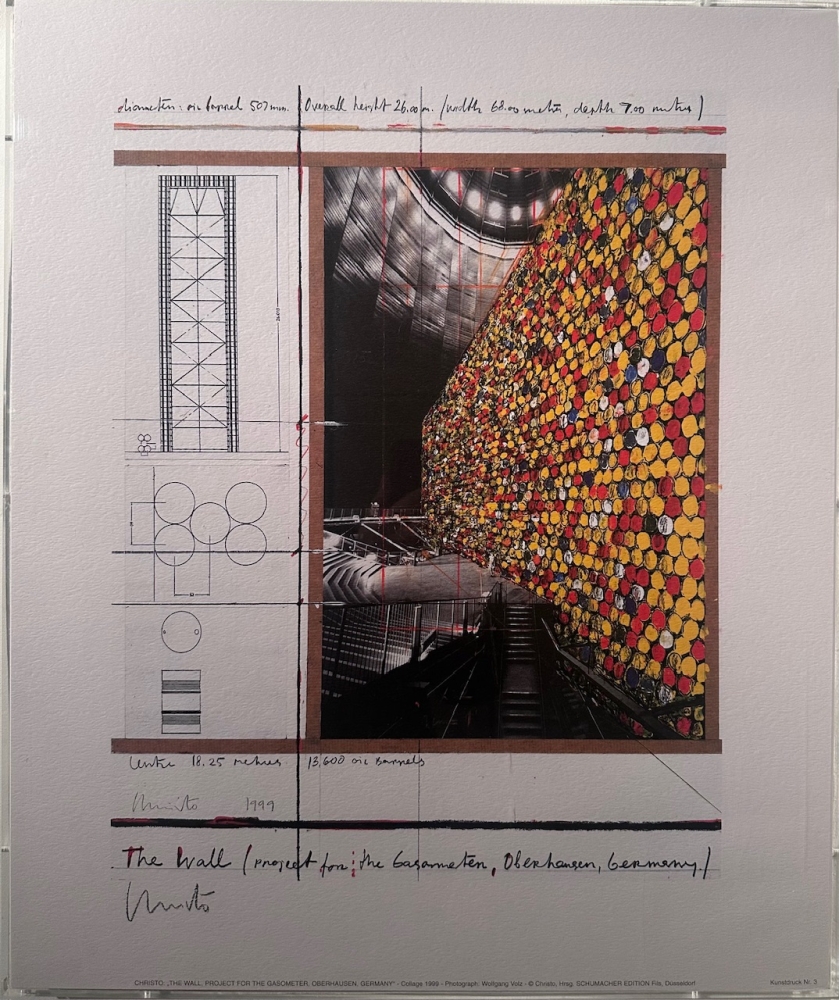 diameter: oil barrel 507 mm. Overall height 26.00 m. (width 68.00 meter, depth 7.00 metres)
Centre 18.25 metres 13,600 oil barrels
Christo 1999
The Wall (project for: the Gasometer, Oberhausen, Germany.)
Christo
CHRISTO: „THE WALL, PROJECT FOR THE GASOMETER, OBERHAUSEN, GERMANY" - Collage 1999 - Photograph: Wolfgang Volz - © Christo, Hrsg. SCHUMACHER EDITION Fils, Düsseldorf
Kunstdruck Nr. 3